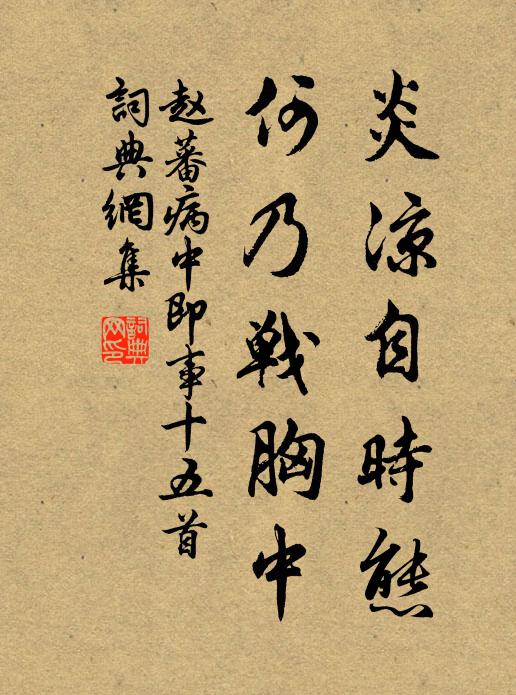 炎涼自時態
何乃戰胸中
赵蕃病中即事十五首
詞典網集
詞典网印